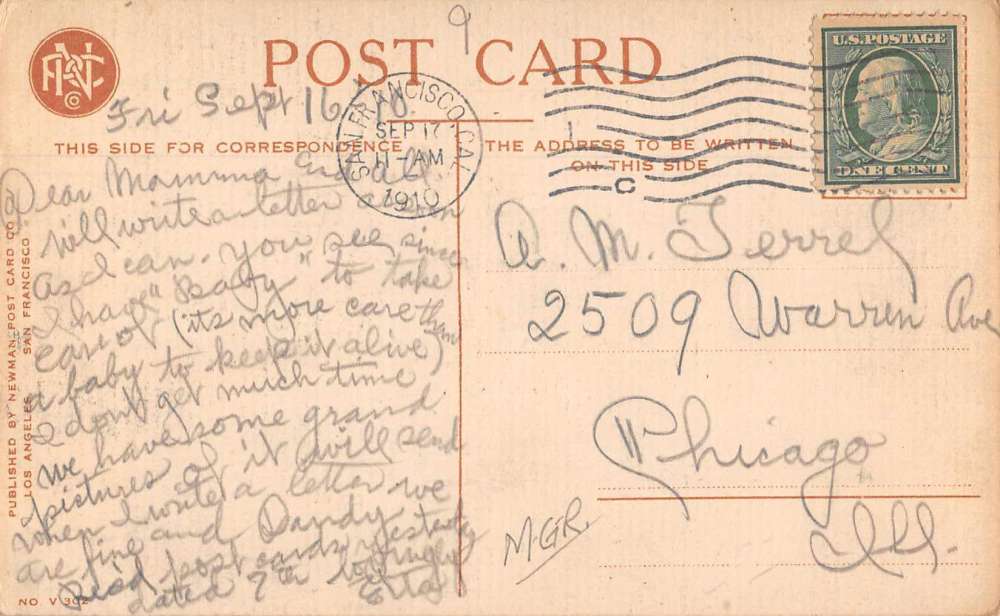 9
POST CARD
ANC
Co
Fri Sept 16
SAN FRANCISCO, CAL.
SEP 17
11-AM
1910
U.S. POSTAGE
ONE CENT
THIS SIDE FOR CORRESPONDENCE
THE ADDRESS TO BE WRITTEN
ON THIS SIDE
C
Dear Mamma
will write a letter
as I can. you see since
I have "Baby" to take
care of (its more care than
a baby to keep it alive)
I dont get much time
we have some grand
pictures of it will send
when I write a letter we
are fine and Dandy.
post cards yesterday
dated 7th Etta
A. M. Terrel
2509 Warren Ave
Chicago
Ill.
M.G.R.
PUBLISHED BY NEWMAN POST CARD CO.
LOS ANGELES SAN FRANCISCO
NO V 302